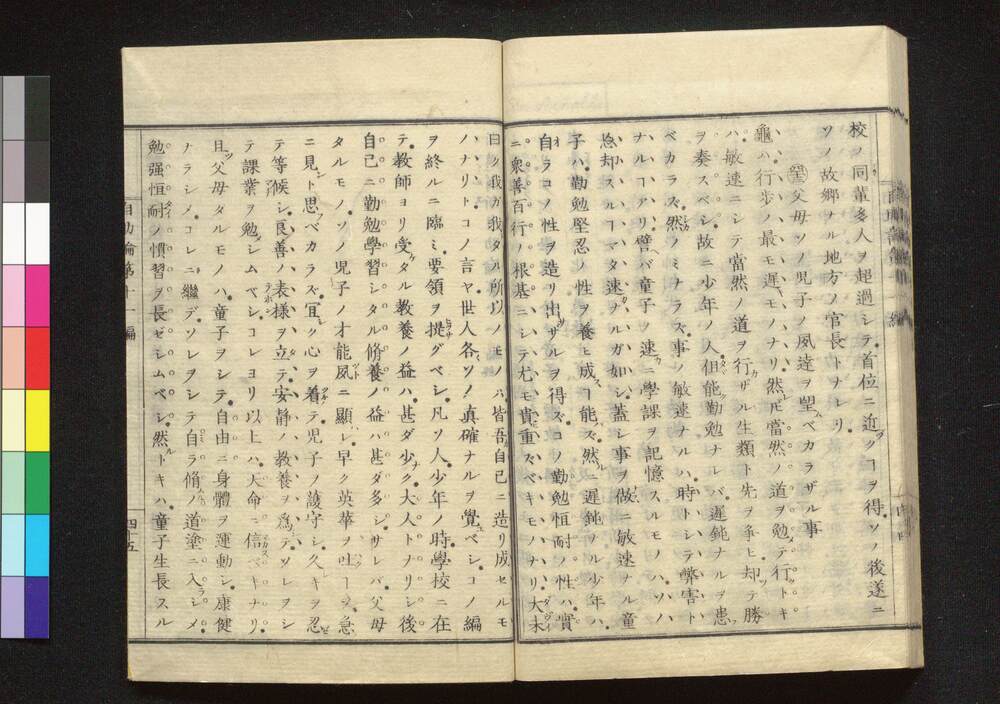 校ノ同輩多人ヲ超過シテ首位ニ近クヿヲ得ソノ後遂ニ
ソノ故郷ナル地方ノ官長トナレリ
父母ソノ児子ノ夙達ヲ望ムベカラザル事
龜ハ行歩ノ最モ遲キモノナリ然𪜈當然ノ道ヲ勉テ行トキ
ハ敏速ニシテ當然ノ道ヲ行カザル生類ト先ヲ爭ヒ却テ勝
ヲ奏スベシ故ニ少年ノ人但能ク勤勉ナレバ遲鈍ナルヲ患フ
ベカラズ然ノミナラズ事ノ敏速ナルハ時トシテ弊害ト
ナルヿアリ譬バ童子ノ速ニ學課ヲ記憶スルモノハソノ
忘却スルヿマタ速ナルガ如シ蓋シ事ヲ做スニ敏速ナル童
子ハ勤勉堅忍ノ性ヲ養ヒ成スヿ能ズ然ルニ遲鈍ノル少年ハ
自ラコノ性ヲ造リ出サザルヲ得ズコノ勤勉恒耐ノ性ハ實
ニ衆善百行ノ根基ニシテ尤モ貴重スベキモノナリ大未
曰ク我ガ我タル所以ノモノハ皆吾自己ニ造リ成セルモ
ノナリトコノ言ヤ世人各々ソノ眞確ナルヲ覺ユベシコノ編
ヲ終ルニ臨ミ要領ヲ提グベシ凡ソ人少年ノ時學校ニ在
テ教師ヨリ受タル教養ノ益ハ甚ダ少ク大人トナリシ後
自己ニ勤勉學習シタル脩養ノ益ハ甚ダ多シサレバ父母
タルモノソノ児子ノ才能夙ニ顯レ早ク英華ヲ吐クヿヲ急
ニ見ント思フベカラズ宜ク心ヲ着テ児子ノ護守シ久キヲ忍
テ等候シ良善ノ表様ヲ立テ安靜ノ教養ヲ爲テソレヲシ
テ課業ヲ勉メシムベシコレヨリ以上ハ天命ニ信スベキナリ
且ツ父母タルモノハ童子ヲシテ自由ニ身體ヲ運動シ康健
ナラシメコレニ繼デソレヲシテ自ラ脩ムル道塗ニ入ラシメ
勉强恒耐ノ慣習ヲ長ゼシムベシ然ルトキハ童子生長スル
自助論第十一編
四十五